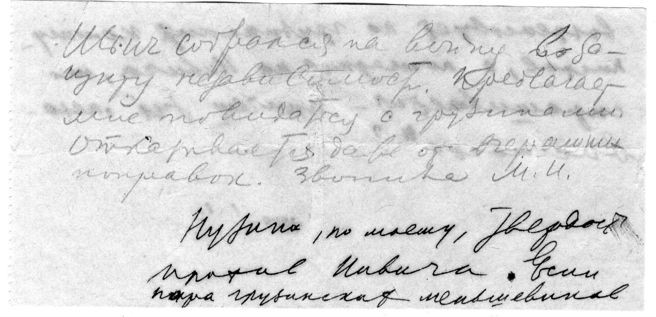 Ильич собрался на войну в за-
щиту независимост. Предлагает
мне повидаться с грузинами.
Отказывается даже от вчерашних
поправок. Звонила М.И.
Нужна, по моему, твердость
против Ильича. Если
пара грузинских меньшевиков